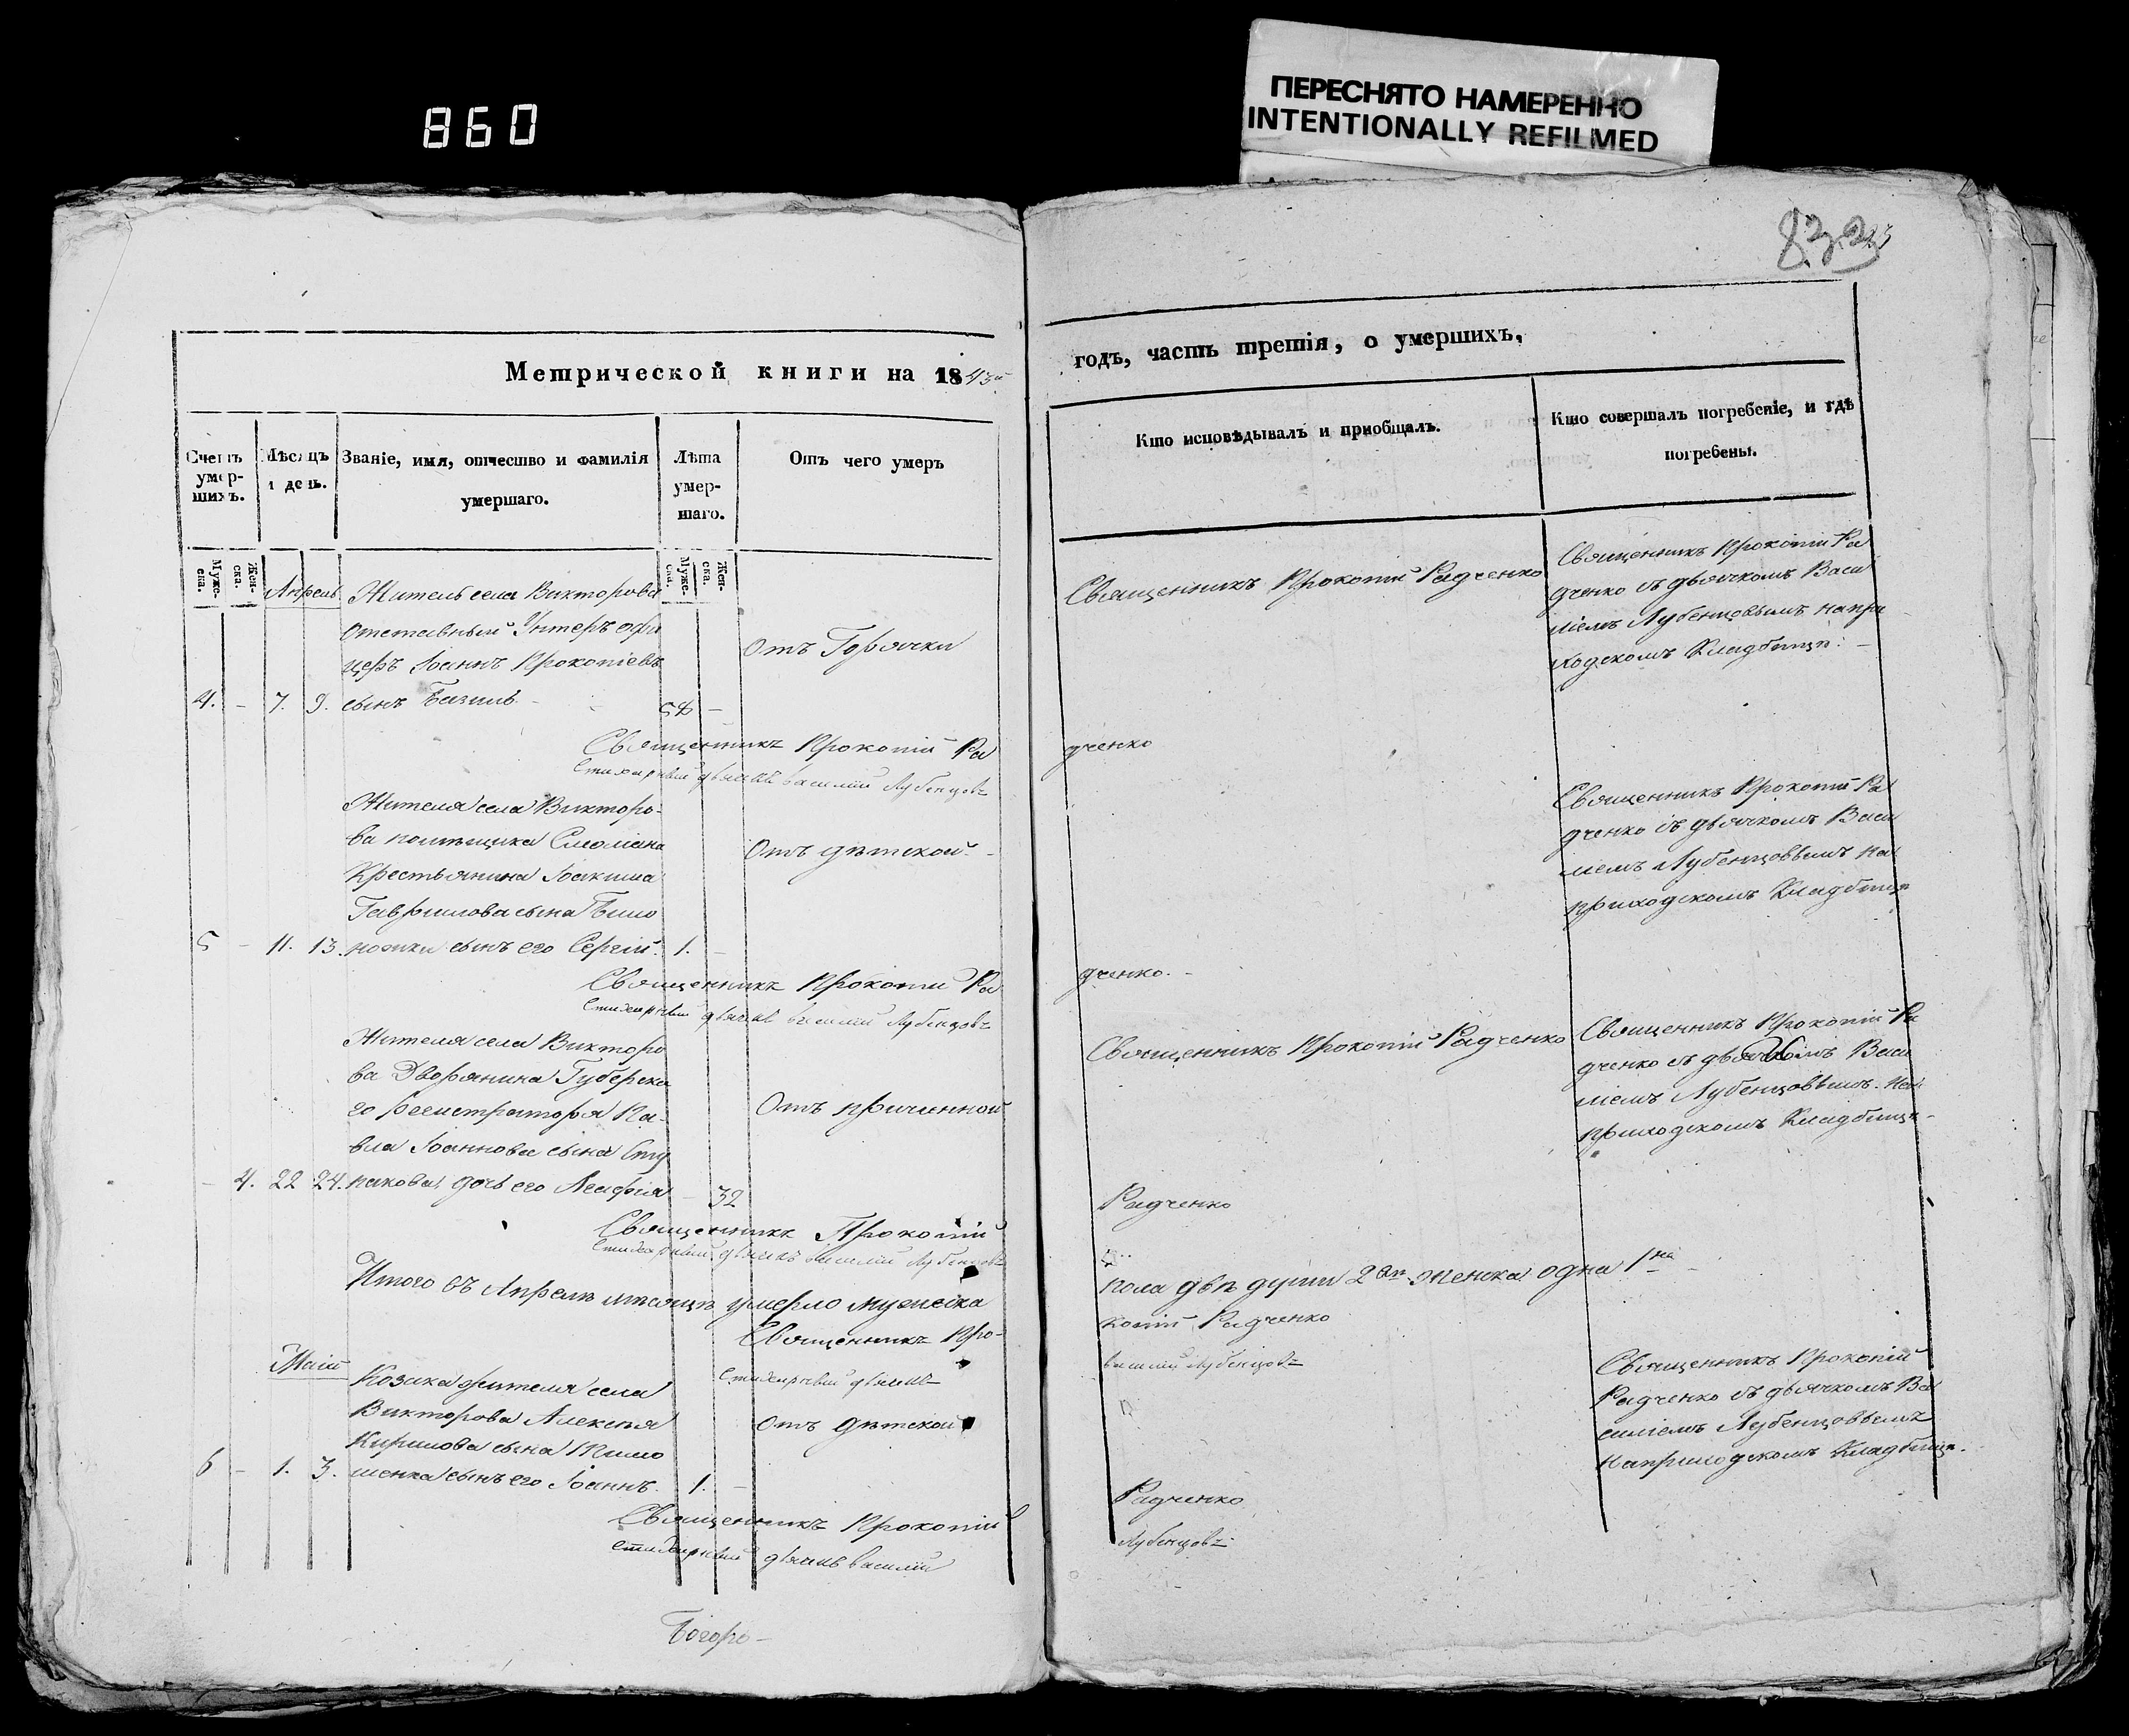 860
ПЕРЕСНЯТО НАМЕРЕННО
INTENTIONALLY REFILMED
Метрической книги на 1843й
годъ, часть третія, о умершихъ,
Счетъ умер-
шихъ.
Мѣсяцъ
и день.
Званіе, имя, отчество и фамилія
умершаго.
Лѣта
умер-
шаго.
Отъ чего умеръ
Кто исповѣдывалъ и приобщалъ.
Кто совершалъ погребеніе, и гдѣ
погребены.
Муже-
ска.
Жен-
ска.
Муже-
ска.
Жен-
ска.
Апрель
Житель села Викторова
Отставный Унтеръ офи
церъ Іоаннъ Прокопіевъ
4. - 7. 9. сынъ 58 -
Отъ Горячки
Священникъ Прокопій Радченко
Священникъ Прокопій Ра
дченко съ дьячкомъ Васи
ліемъ Лубенцовымъ на при
ходскомъ Кладбищѣ. -
Священникъ Прокопій Ра
дченко
Стихарный дьячокъ василій Лубенцовъ
Жителя села Викторо-
ва помѣщика
Крестьянина Іоакима
Гаврилова сына Било
5 - 11. 13. ножки сынъ его Сергій. 1. -
Отъ дѣтской. -
Священникъ Прокопій Ра
дченко съ дьячкомъ Васи
ліемъ Лубенцовымъ на
приходскомъ Кладбищѣ
Священникъ Прокопій Ра
дченко. -
Стихарный дьячокъ василій Лубенцовъ
Жителя села Викторо
ва Дворянина Губерска
го регистратора Па-
вла Іоаннова сына Сту
- 4. 22 24. пакова дочь его Агафія - 32
Отъ причинной
Священникъ Прокопій Радченко
Священникъ Прокопій Ра
дченко съ дьячкомъ Васи
ліемъ Лубенцовымъ. на
приходскомъ Кладбищѣ -
Священникъ Прокопій
Радченко
Стихарный дьячокъ василій Лубенцовъ
Итого въ Апрелѣ мѣсяцѣ умерло мужеска
пола двѣ души 2вѣ женска одна 1на
Священникъ Про-
копій Радченко
Стихарный дьячокъ
василій Лубенцовъ
Маій
Козака жителя села
Викторова Алексѣя
Кирилова сына
6 - 1. 3. шенка сынъ его Іоаннъ. 1. -
Отъ дѣтской
Священникъ Прокопій
Радченко съ дьячкомъ Ва
силіемъ Лубенцовымъ
на приходскомъ Кладбищѣ.
Священникъ Прокопій
Радченко
Стихарный дьячокъ василій
Лубенцовъ
Богоро-